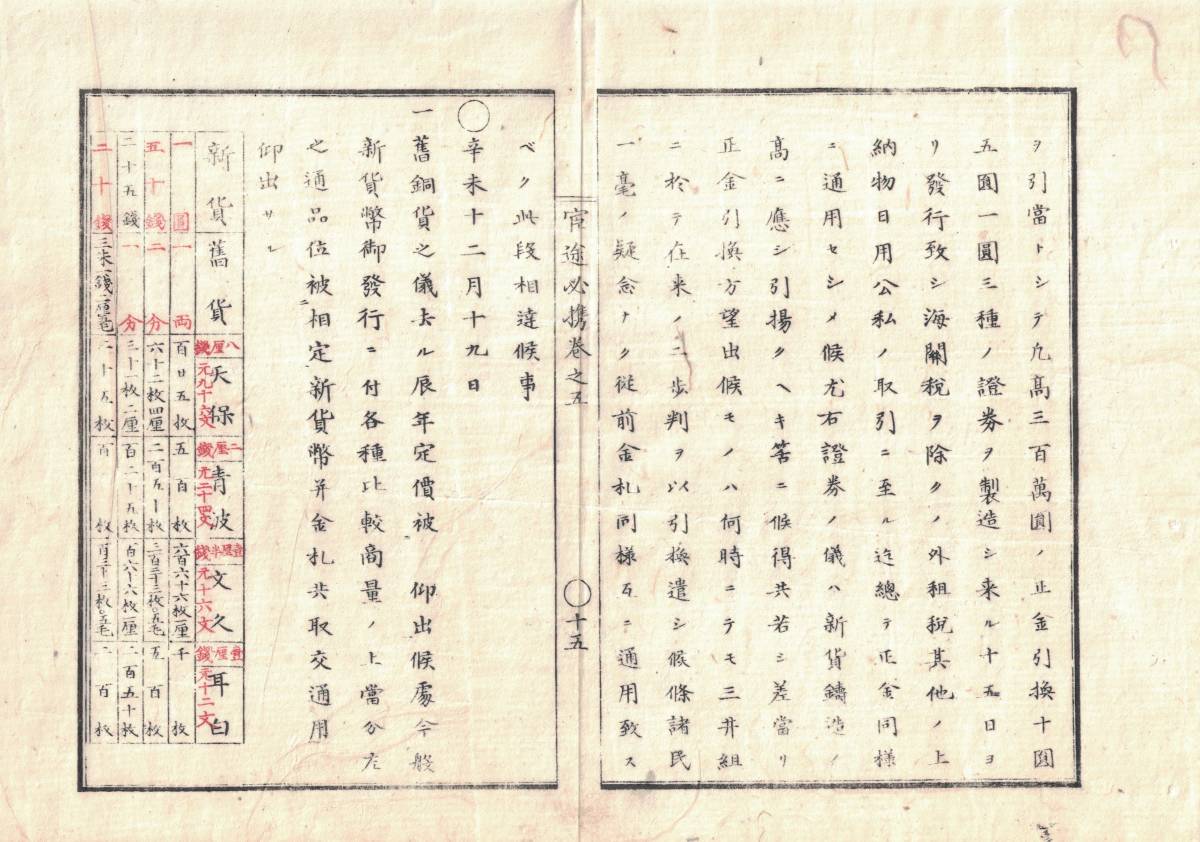 ヲ引當トシテ凢高三百萬圓ノ正金引換十圓
五圓一圓三種ノ證券ヲ製造シ来ル十五日ヨ
リ發行致シ海關税ヲ除クノ外租税其他ノ上
納物日用公私ノ取引ニ至ル迄總テ正金同様
ニ通用セシメ候尤右證券ノ儀ハ新貨鑄造ノ
高ニ應シ引揚クヘキ筈ニ候得共若シ差當リ
正金引換方望出候モノハ何時ニテモ三井組
ニ於テ在来ノ二歩判ヲ以引換遣シ候條諸民
一毫ノ疑念ナク従前金札同様互ニ通用致ス
宦途必携巻之五
〇十五
ベク此段相達候事
〇辛未十二月十九日
一舊銅貨之儀去ル辰年定價被 仰出候處今般
新貨幣御發行ニ付各種比較髙量ノ上當分左
之通品位被相定新貨幣并金札共取交通用
仰出サル
新貨 舊貨 八厘錢 天保 元九十六文 二厘錢 青波 元二十四文 壹厘半錢 文久 元十六文 壹厘錢 耳白 元十二文
一圓 一兩 百廿五枚 五百枚 六百六十六枚一厘 千枚
五十錢 二分 六十二枚四厘 二百五十枚 三百三十三枚〇五毛 五百枚
二十五錢 一分 三十一枚二厘 百二十五枚 百六十六枚一厘 二百五十枚
二十錢 三朱 二十五枚 百枚 百三十三枚〇五毛 二百枚